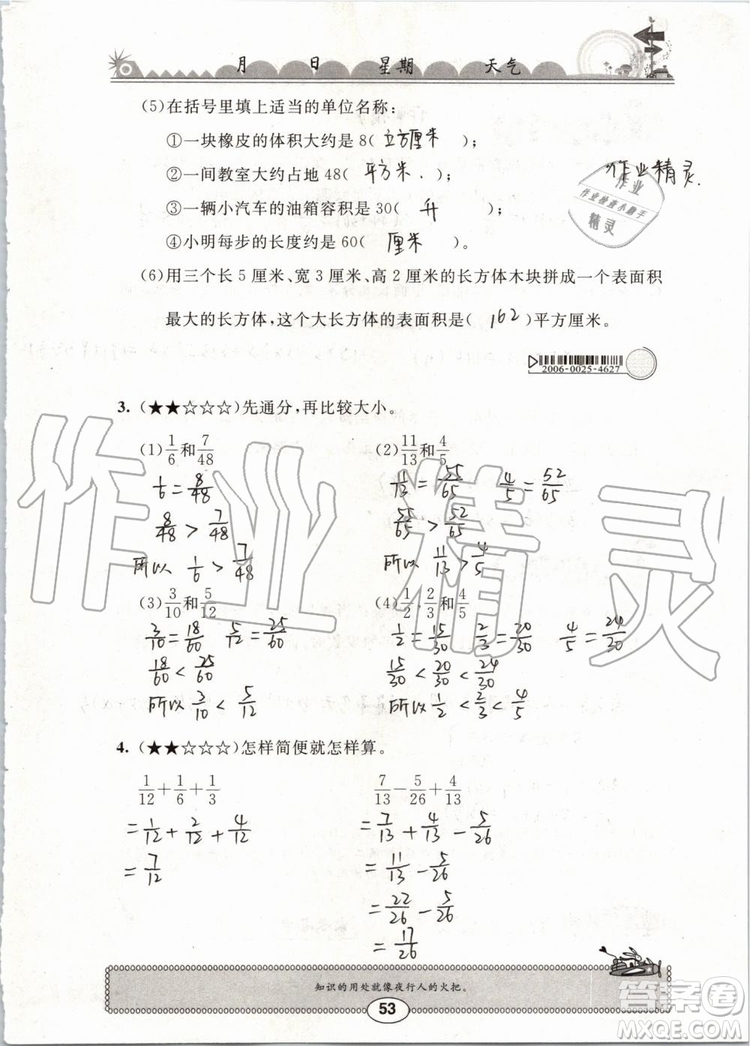 月 日 星期 天气
(5)在括号里填上适当的单位名称:
①一块橡皮的体积大约是8(立方厘米);
②一间教室大约占地48(平方米.);
③一辆小汽车的油箱容积是30(升);
④小明每步的长度约是60(厘米)。
作业精灵
作业
作业检查小助手
精灵
(6)用三个长5厘米、宽3厘米、高2厘米的长方体木块拼成一个表面积
最大的长方体,这个大长方体的表面积是(162)平方厘米。
2006-0025-4627
3. (★★☆☆☆)先通分,再比较大小。
(1) 1/6 和 7/48 (2) 11/13 和 4/5
1/6 = 8/48 11/12 = 55/65 4/5 = 52/65
8/48 > 7/48 55/65 > 52/65
所以 1/6 > 7/48 所以 11/13 > 4/5
(3) 3/10 和 5/12 (4) 1/2, 2/3 和 4/5
3/10 = 18/60 5/12 = 25/60 1/2 = 15/30 2/3 = 20/30 4/5 = 24/30
18/60 < 25/60 15/30 < 20/30 < 24/30
所以 3/10 < 5/12 所以 1/2 < 2/3 < 4/5
4. (★★☆☆☆)怎样简便就怎样算。
1/12 + 1/6 + 1/3 7/13 - 5/26 + 4/13
= 1/12 + 2/12 + 4/12 = 7/13 + 4/13 - 5/26
= 7/12 = 11/13 - 5/26
= 22/26 - 5/26
= 17/26
作业精灵
知识的用处就像夜行人的火把。
53
答案卷
MXQE.COM